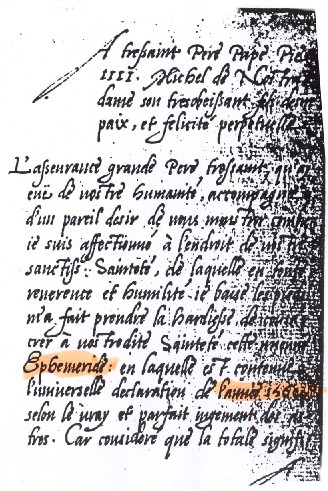 A tressaint Pere Pape Pie
IIII. Michel de Nostra
dame son tresobeissant
paix, et felicité perpetuelle
L'asseurance grande Pere tressaint, qu'on
euë de vostre humanité, accompagne
d'un pareil desir de vous
ie suis affectionné à l'endroit de
sanctiss: Sainteté, de laquelle en toute
reverence et humilité ie baise les pieds
m'a fait prendre la hardiesse de
crer à vostredite Sainteté ceste
Ephemeride: en laquelle est contenue
l'universelle declaration de l'année 156
selon le vray et parfait iugement des
tres. Car consideré que la totale